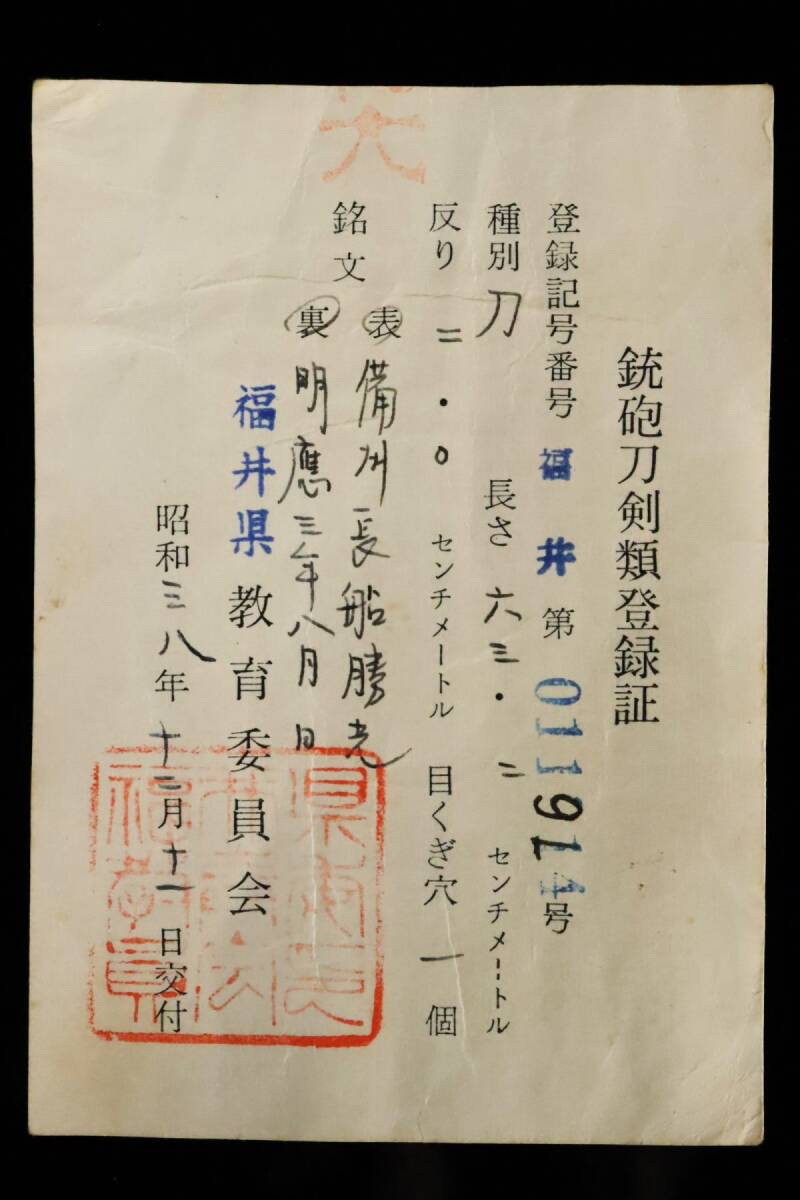 銃砲刀剣類登録証
登録記号番号 福井 第 011914 号
種別 刀 長さ 六三・二 センチメートル
反り 二・〇 センチメートル 目くぎ穴 一 個
銘文
表 備州長船勝光
裏 明應三年八月日
福井県教育委員会
昭和三八年十二月十一日交付